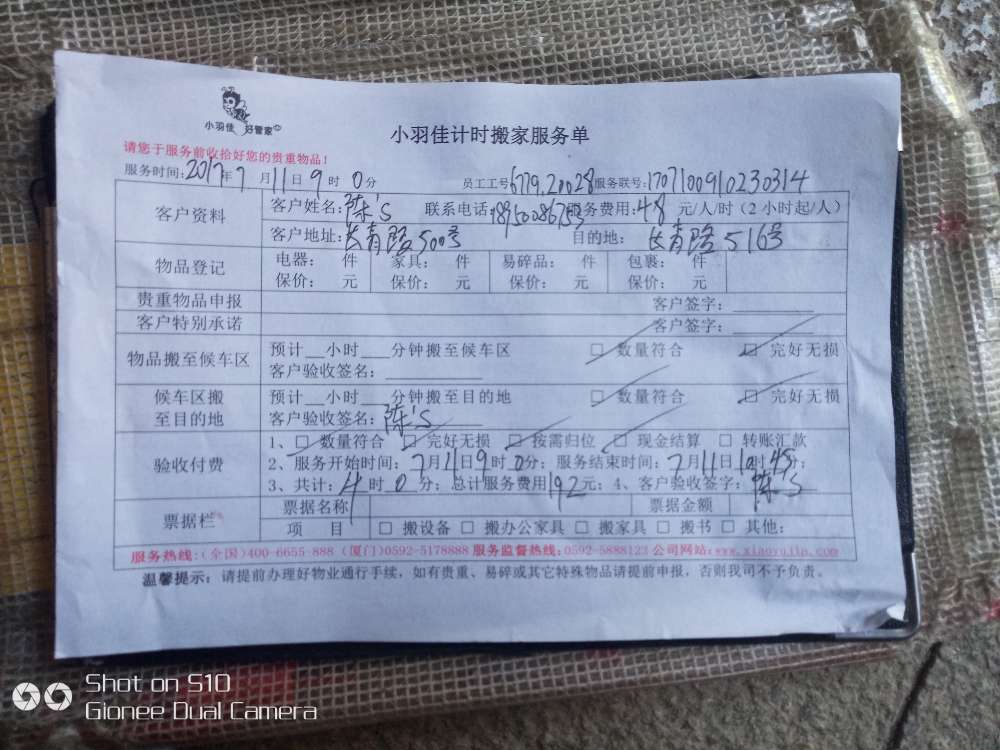 小羽佳 好管家
小羽佳计时搬家服务单
请您于服务前收拾好您的贵重物品！
服务时间：2017年7月11日9时0分 员工工号6779.20028服务联号：1707100910230314
客户资料 客户姓名：陈'S 联系电话：18950086753服务费用：48元/人/时（2小时起/人）
客户地址：长青路500号 目的地：长青路516号
物品登记 电器： 件 家具： 件 易碎品： 件 包裹： 件
保价： 元 保价： 元 保价： 元 保价： 元
贵重物品申报 客户签字：
客户特别承诺 客户签字：
物品搬至候车区 预计__小时___分钟搬至候车区 □ 数量符合 □ 完好无损
客户验收签名：
候车区搬至目的地 预计__小时___分钟搬至目的地 □ 数量符合 □ 完好无损
客户验收签名：陈'S
验收付费 1、□ 数量符合 □ 完好无损 □ 按需归位 □ 现金结算 □ 转账汇款
2、服务开始时间：7月11日9时0分；服务结束时间：7月11日10时45分；
3、共计：4时0分；总计服务费用192元；4、客户验收签字：陈'S
票据栏 票据名称 票据金额
项 目 □ 搬设备 □ 搬办公家具 □ 搬家具 □ 搬书 □ 其他：
服务热线：（全国）400-6655-888（厦门）0592-5178888 服务监督热线：0592-5888123 公司网站：www.xiaoyujia.com
温馨提示：请提前办理好物业通行手续，如有贵重、易碎或其它特殊物品请提前申报，否则我司不予负责。
Shot on S10
Gionee Dual Camera